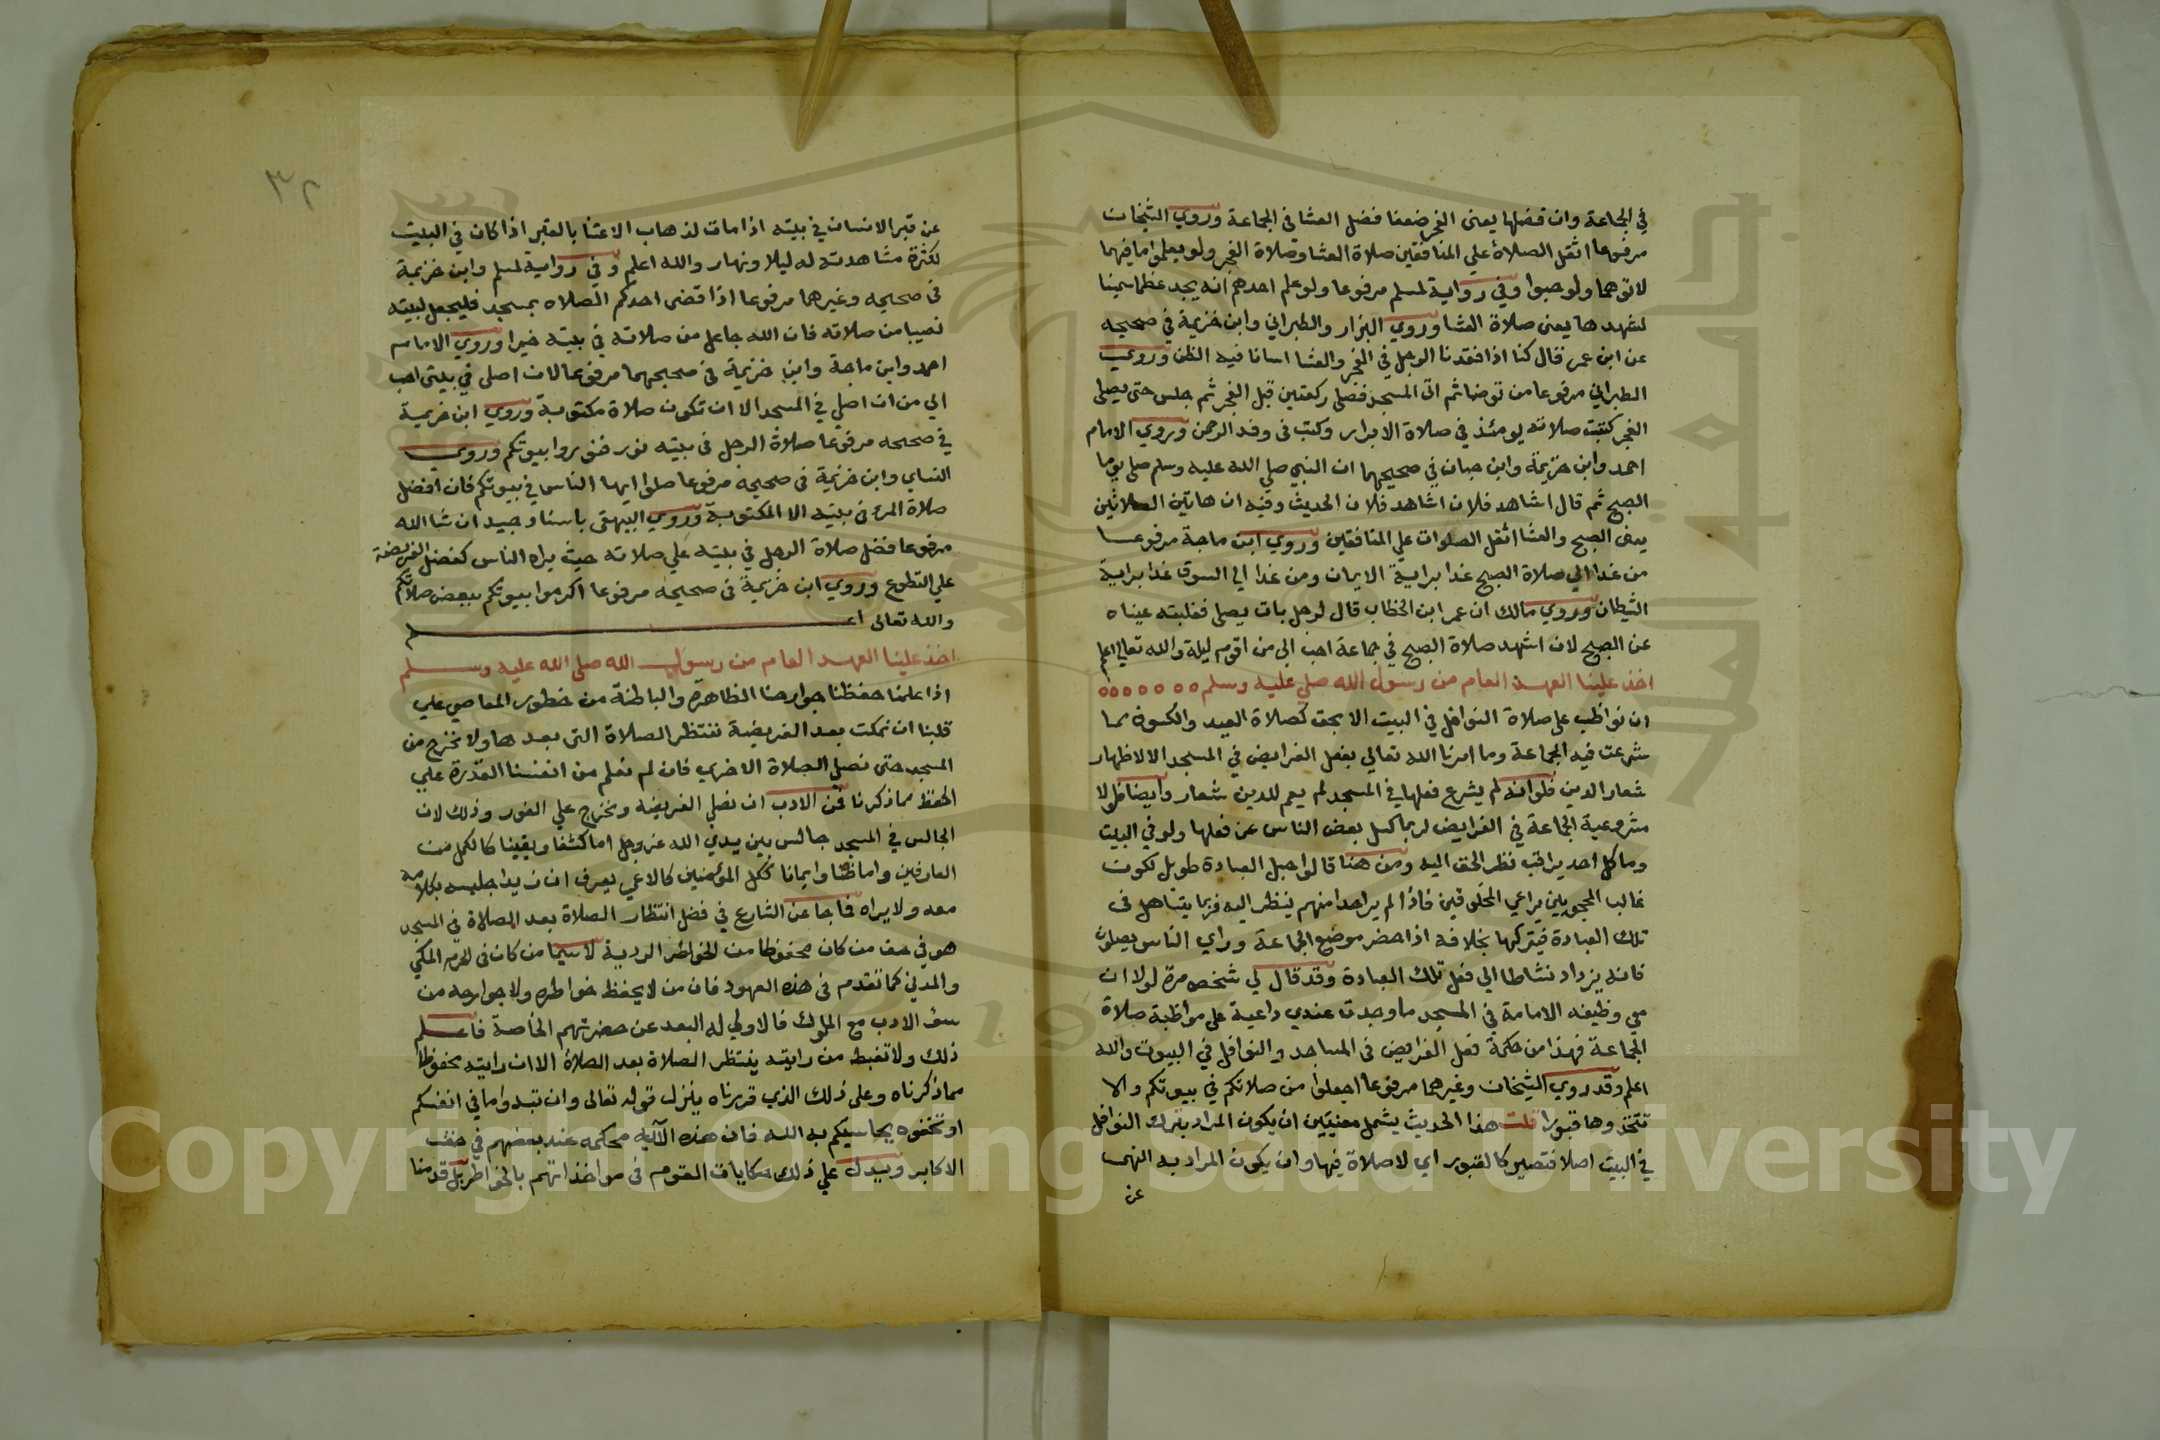 في الجماعة وان فضلها يعنى الفجر ضعفا فضل العشا في الجماعة وروي الشيخان
مرفوعا اثقل الصلاة علي المنافقين صلاة العشا وصلاة الفجر ولو يعلموا ما فيهما
لاتوهما ولو حبوا وفي رواية لمسلم مرفوعا ولو علم احدهم انه يجد عظما سمينا
لشهدها يعنى صلاة العشا وروي البزار والطبراني وابن خزيمة في صحيحه
عن ابن عمر قال كنا اذا فقدنا الرجل في الفجر والعشا اسانا فيه الظن وروي
الطبراني مرفوعا من توضا ثم اتى المسجد فصلى ركعتين قبل الفجر ثم جلس حتى يصلى
الفجر كتبت صلاته يومئذ في صلاة الابرار وكتب فى وفد الرحمن وروي الامام
احمد وابن خزيمة وابن حبان في صحيحيهما ان النبي صلي الله عليه وسلم صلى يوما
الصبح ثم قال اشاهد فلان اشاهد فلان الحديث وفيه ان هاتين الصلاتين
يعنى الصبح والعشا اثقل الصلوات علي المنافقين وروي ابن ماجة مرفوعا
من غدا الي صلاة الصبح غدا براية الايمان ومن غدا الي السوق غدا براية
الشيطان وروي مالك ان عمر ابن الخطاب قال لرجل بات يصلى فغلبته عيناه
عن الصبح لان اشهد صلاة الصبح في جماعة احب الي من اقوم ليلة والله تعالي اعلم
اخذ علينا العهد العام من رسول الله صلي عليه وسلم
ان نواظب على صلاة النوافل في البيت الا بحق كصلاة العيد والكسوف مما
شرعت فيه الجماعة وما امرنا الله تعالي بفعل الفرايض في المسجد الا لاظهار
شعار الدين فلو انه لم يشرع فعلها في المسجد لم يعم للدين شعار وايضا فلولا
مشروعية الجماعة في الفرايض لربما كسل بعض الناس عن فعلها ولو في البيت
وما كل احد يراقب نظر الحق اليه ومن هنا قالوا حبل العبادة طويل لكون
غالب المحجوبين يراعي المخلوقين فاذا لم ير احدا منهم ينظر اليه فربما يتساهل فى
تلك العبادة فيتركها بخلافه اذا حضر موضع الجماعة وراي الناس يصلون
فانه يزداد نشاطا الي فعل تلك العبادة وقد قال لي شخص مرة لولا ان
معي وظيفه الامامة في المسجد ما وجدت عندي داعية على مواظبة صلاة
الجماعة فهذا من حكمة فعل الفرايض فى المساجد والنوافل في البيوت والله
اعلم وقد روي الشيخان وغيرهما مرفوعا اجعلوا من صلاتكم في بيوتكم ولا
تتخذوها قبورا قلت هذا الحديث يشمل معنيين ان يكون المراد بترك النوافل
في البيت اصلا فتصير كالقبور اي لا صلاة فيها وان يكون المراد به النهى
عن
٣٢
عن قبر الانسان في بيته اذا مات لذهاب الاعتنا بالقبر اذا كان في البيت
لكثرة مشاهدته له ليلا ونهار والله اعلم وفي رواية لمسلم وابن خزيمة
فى صحيحه وغيرهما مرفوعا اذا قضى احدكم الصلاه بمسجد فليجعل لبيته
نصيبا من صلاته فان الله جاعل من صلاته في بيته خيرا وروي الامام
احمد وابن ماجة وابن خزيمة في صحيحهما مرفوعا لان اصلى في بيتى احب
الي من ان اصلي في المسجد الا ان تكون صلاة مكتوبة وروي ابن خزيمة
في صحيحه مرفوعا صلاة الرجل فى بيته نور فنوروا بيوتكم وروي
النساي وابن خزيمة في صحيحه مرفوعا صلوا ايها الناس في بيوتكم فان افضل
صلاة المرء فى بيته الا المكتوبة وروي البيهقى باسناد جيد ان شا الله
مرفوعا فضل صلاة الرجل في بيته علي صلاته حيث يراه الناس كفضل الفريضة
علي التطوع وروي ابن خزيمة في صحيحه مرفوعا اكرموا بيوتكم ببعض صلاتكم
والله تعالى اعلم
اخذ علينا العهد العام من رسول الله صلى الله عليه وسلم
اذا علمنا حفظنا جوارحنا الظاهرة والباطنة من خطور المعاصي علي
قلبنا ان نمكث بعد الفريضة ننتظر الصلاة التى بعدها ولا نخرج من
المسجد حتى نصلي الصلاة الاخري فان لم نعلم من انفسنا القدرة علي
الحفظ مما ذكرنا فمن الادب ان نصلي الفريضة ونخرج علي الفور وذلك لان
الجالس في المسجد جالس بين يدي الله عز وجل اما كشفا ويقينا كالكمل من
العارفين واما ظنا وايمانا ككل المؤمنين كالاعمي يعرف ان زيدا جليسه بكلامه
معه ولا يراه فما جا عن الشارع في فضل انتظار الصلاة بعد الصلاة في المسجد
هو في حق من كان محفوظا من الخواطر الردية لاسيما من كان فى الحرم المكي
والمدني كما تقدم فى هذه العهود فان من لا يحفظ خواطره ولا جوارحه من
سوء الادب مع الملوك فالاولي له البعد عن حضرتهم الخاصة فاعلم
ذلك ولا تغبط من رايته ينتظر الصلاة بعد الصلاة الا ان رايته محفوظا
مما ذكرناه وعلى ذلك الذي قررناه ينزل قوله تعالى وان تبدوا ما في انفسكم
او تخفوه يحاسبكم به الله فان هذه الآية محكمه عند بعضهم في حق
الاكابر ويدل علي ذلك حكايات القوم فى مواخذاتهم بالخواطر بل قدمنا
Copyright © King Saud University